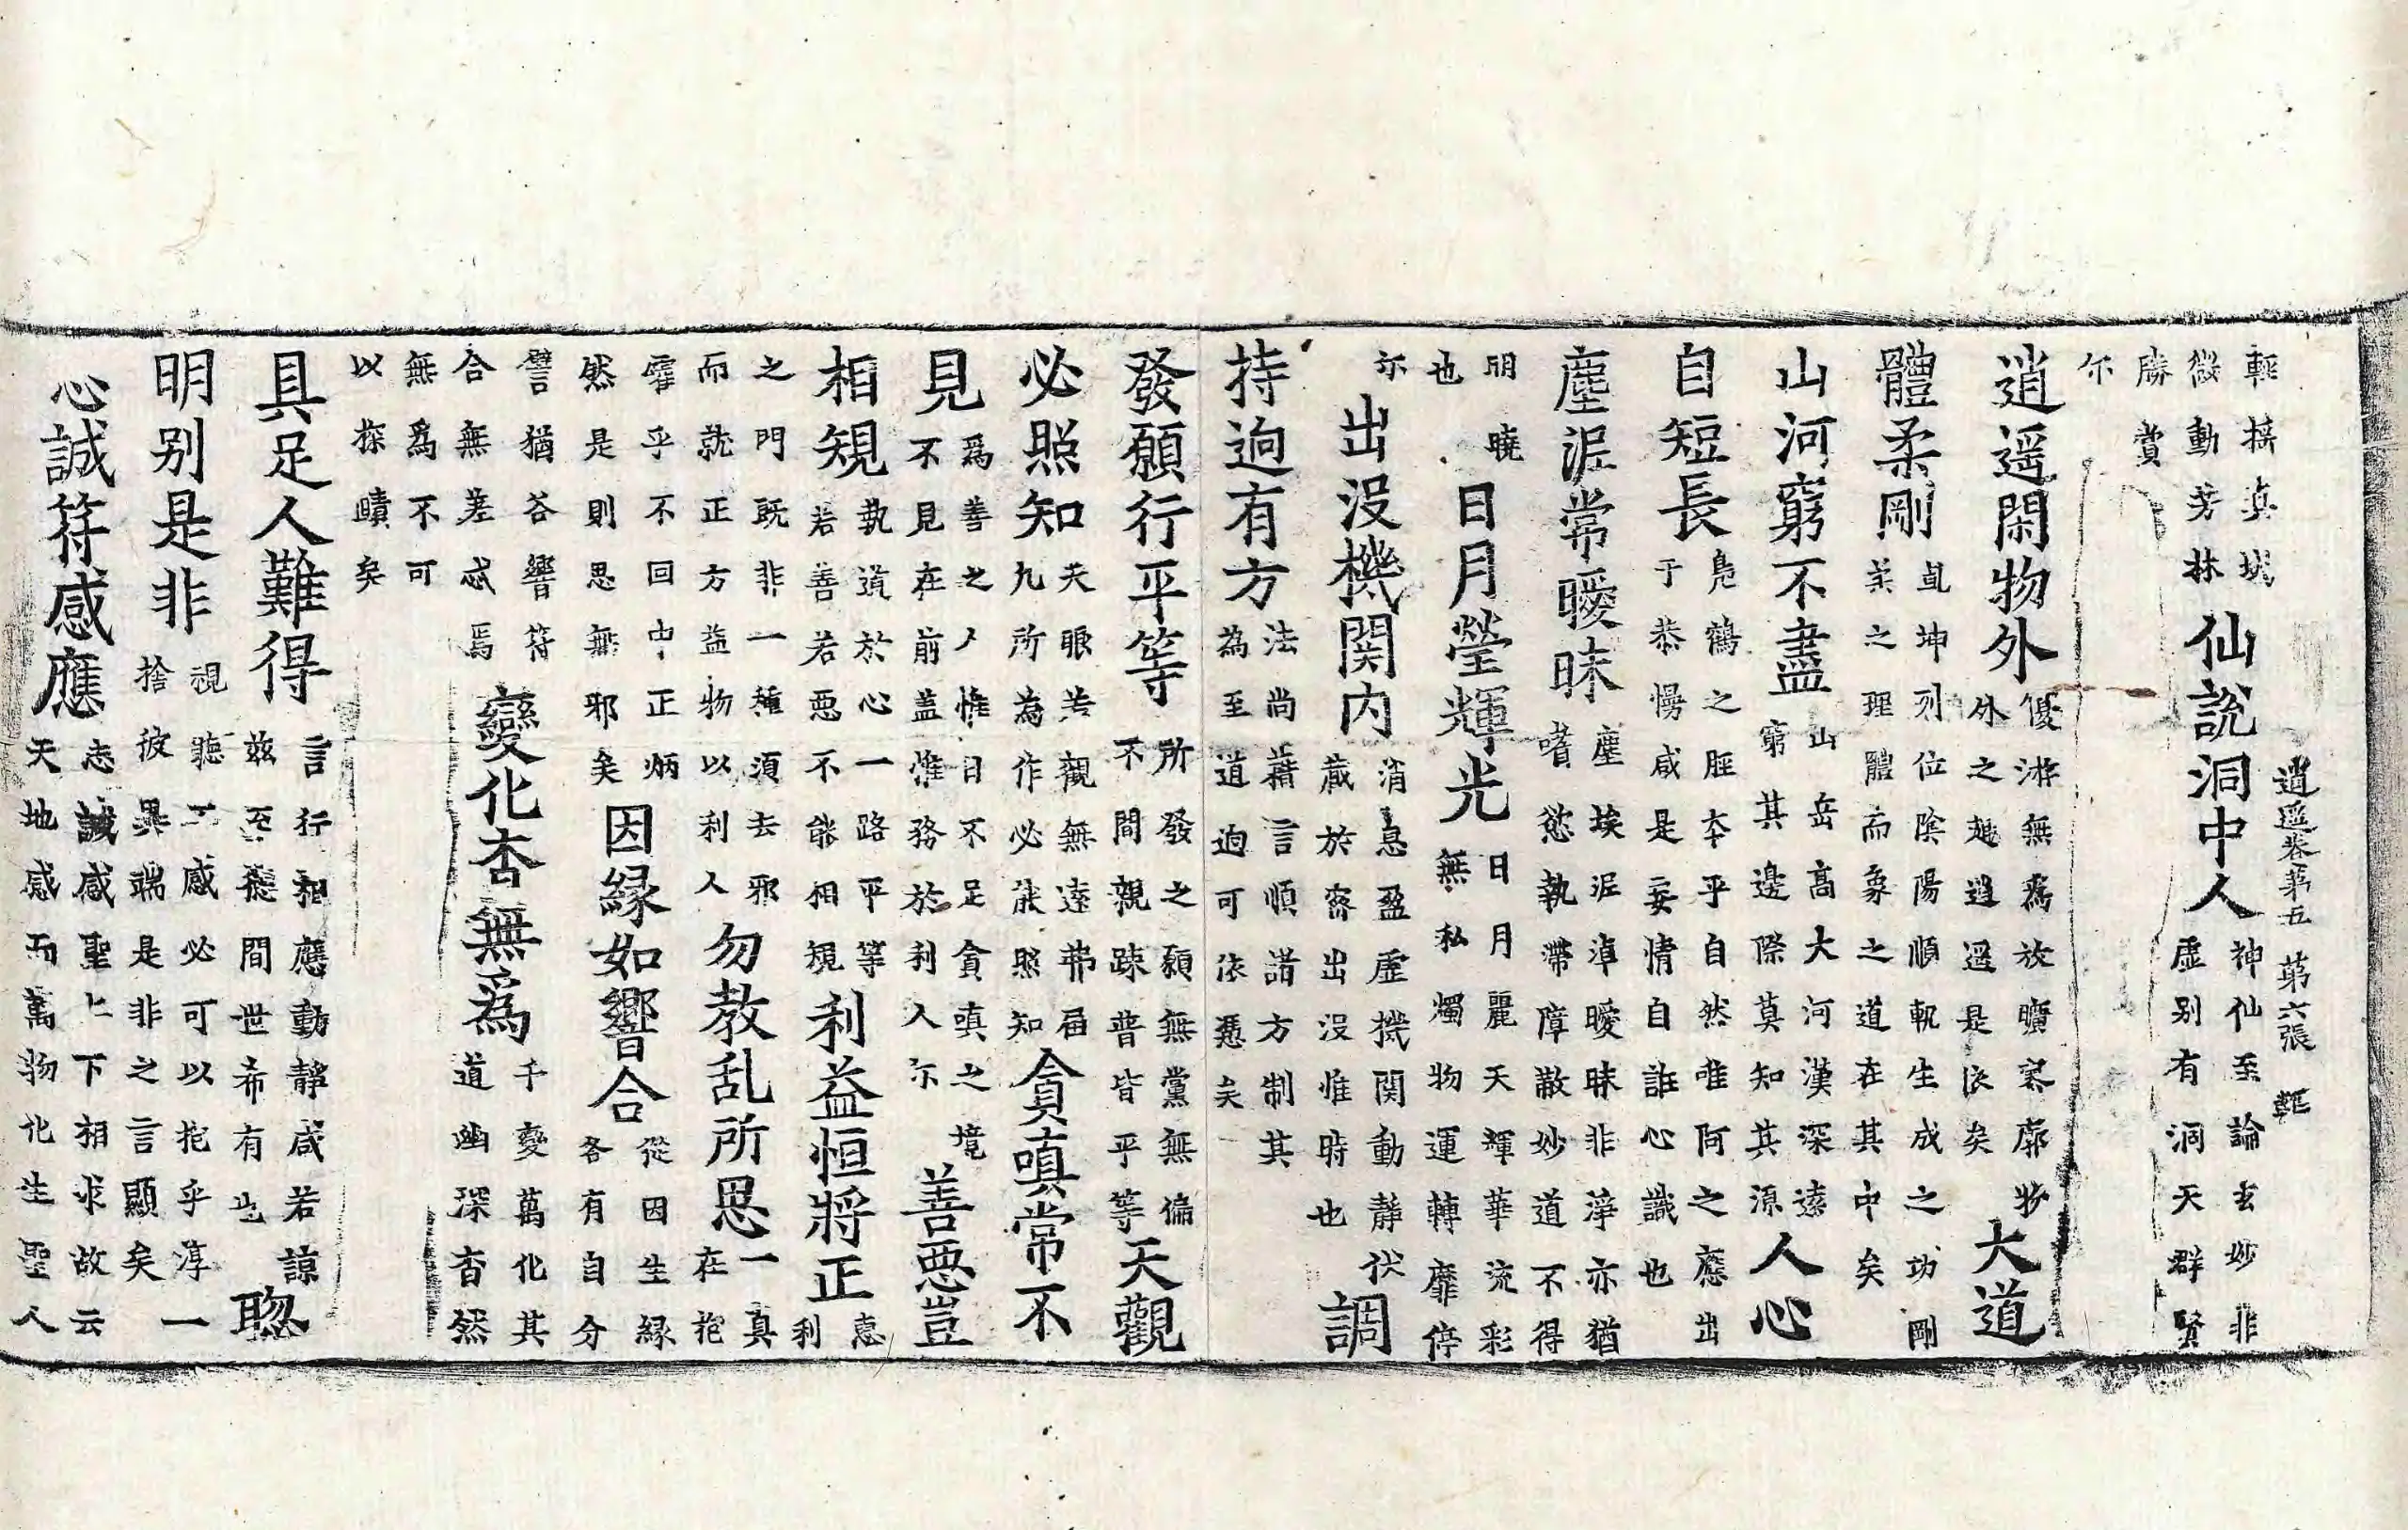 逍遥卷第五 第六張 輕
輕搖真境
微動芳林
仙說洞中人
神仙至論玄妙非
虛别有洞天群賢
勝賞
尓
逍遥閑物外
優游無爲放曠寥廓物
外之趣逍遥是依矣
大道
體柔剛
乹坤列位陰陽順軌生成之功剛
柔之理體而象之道在其中矣
山河窮不盡
山岳高大河漢深遠
窮其邊際莫知其源
人心
自短長
鳧鶴之脛本乎自然唯阿之應出
于恭慢咸是妄情自誑心識也
塵泥常曖昧
塵埃泥滓曖昧非淨亦猶
嗜慾執滯障蔽妙道不得
明曉
也
日月瑩輝光
日月麗天輝華流彩
無私燭物運轉靡停
尓
出没機関内
消息盈虛機関動靜伏
藏於密出没惟時也
調
持逈有方
法尚藉言順諸方制其
為至道逈可依憑矣
發願行平等
所發之願無黨無偏
不間親踈普皆平等
天觀
必照知
夫眼若觀無遠弗屆
凡所為作必能照知
貪嗔常不
見
爲善之人惟日不足貪嗔之境
不見在前盖惟務於利人尓
善惡豈
相規
執道於心一路平等
若善若惡不能相規
利益恒將正
恵
利
之門既非一種須去邪
而就正方益物以利人
勿教乱所思
一真
在抱
靡乎不回中正炳
然是則思無邪矣
因縁如響合
從因生縁
各有自分
譬猶谷響符
合無差忒焉
變化杳無爲
千變萬化其
道幽深杳然
無爲不可
以探賾矣
具足人難得
言行相應動靜咸若諒
兹至德間世希有也
聦
明别是非
視聽二感必可以抱乎淳一
捨彼異端是非之言顯矣
心誠符感應
志誠感聖上下相求故云
天地感而萬物化生聖人